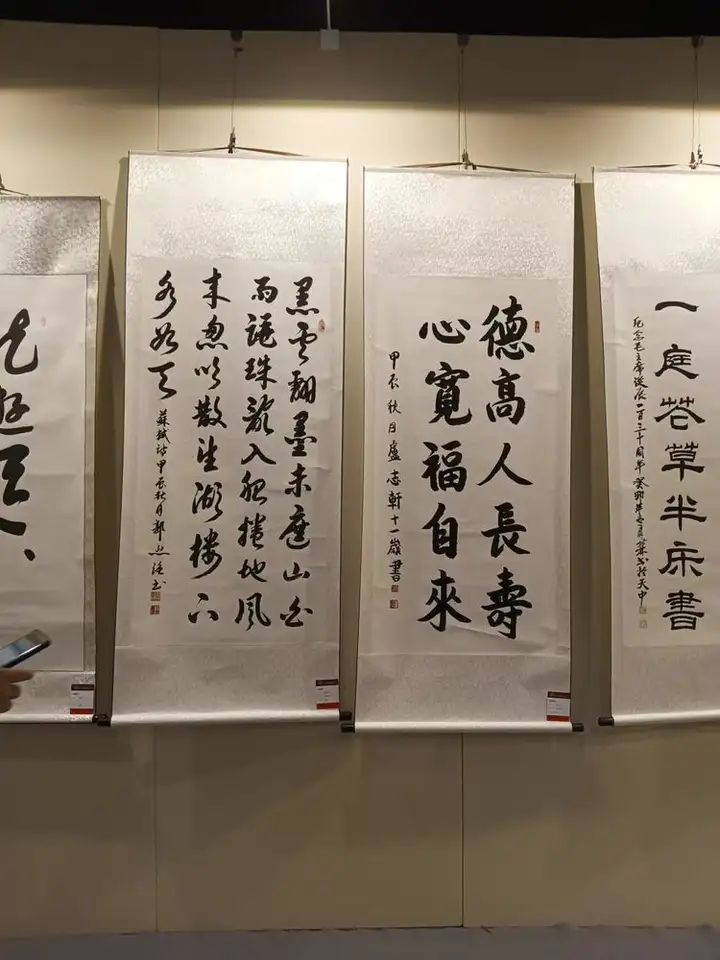 黑雲翻墨未遮山白
雨跳珠亂入船捲地風
来忽吹散望湖樓下
水如天
蘇軾詩甲辰秋月郭
德高人長壽
心寬福自來
甲辰秋月盧志軒十一歲書
一庭花草半床書
纪念毛主席诞辰一百三十周年癸卯年